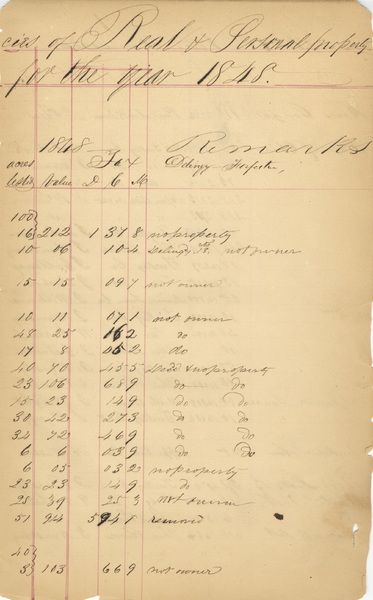 cies of Real & Personal property
for the year 1848.
1848 Tax Remarks
acres
Value D. C M.
100
16 212 1 37 8 no property
10 06 10 4 not owner
15 15 09 7 not owner
10 11 07 1 not owner
48 25 16 2 do
17 8 05 2 do
40 70 45 5 Sold & no property
23 106 68 9 do do
15 23 14 9 do do
30 42 27 3 do do
34 72 46 9 do do
6 6 03 9 do do
6 05 03 2 no property
23 23 14 9 do
28 39 25 3 Not owner
51 94 5 94 8 removed
40
3 103 66 9 not owner